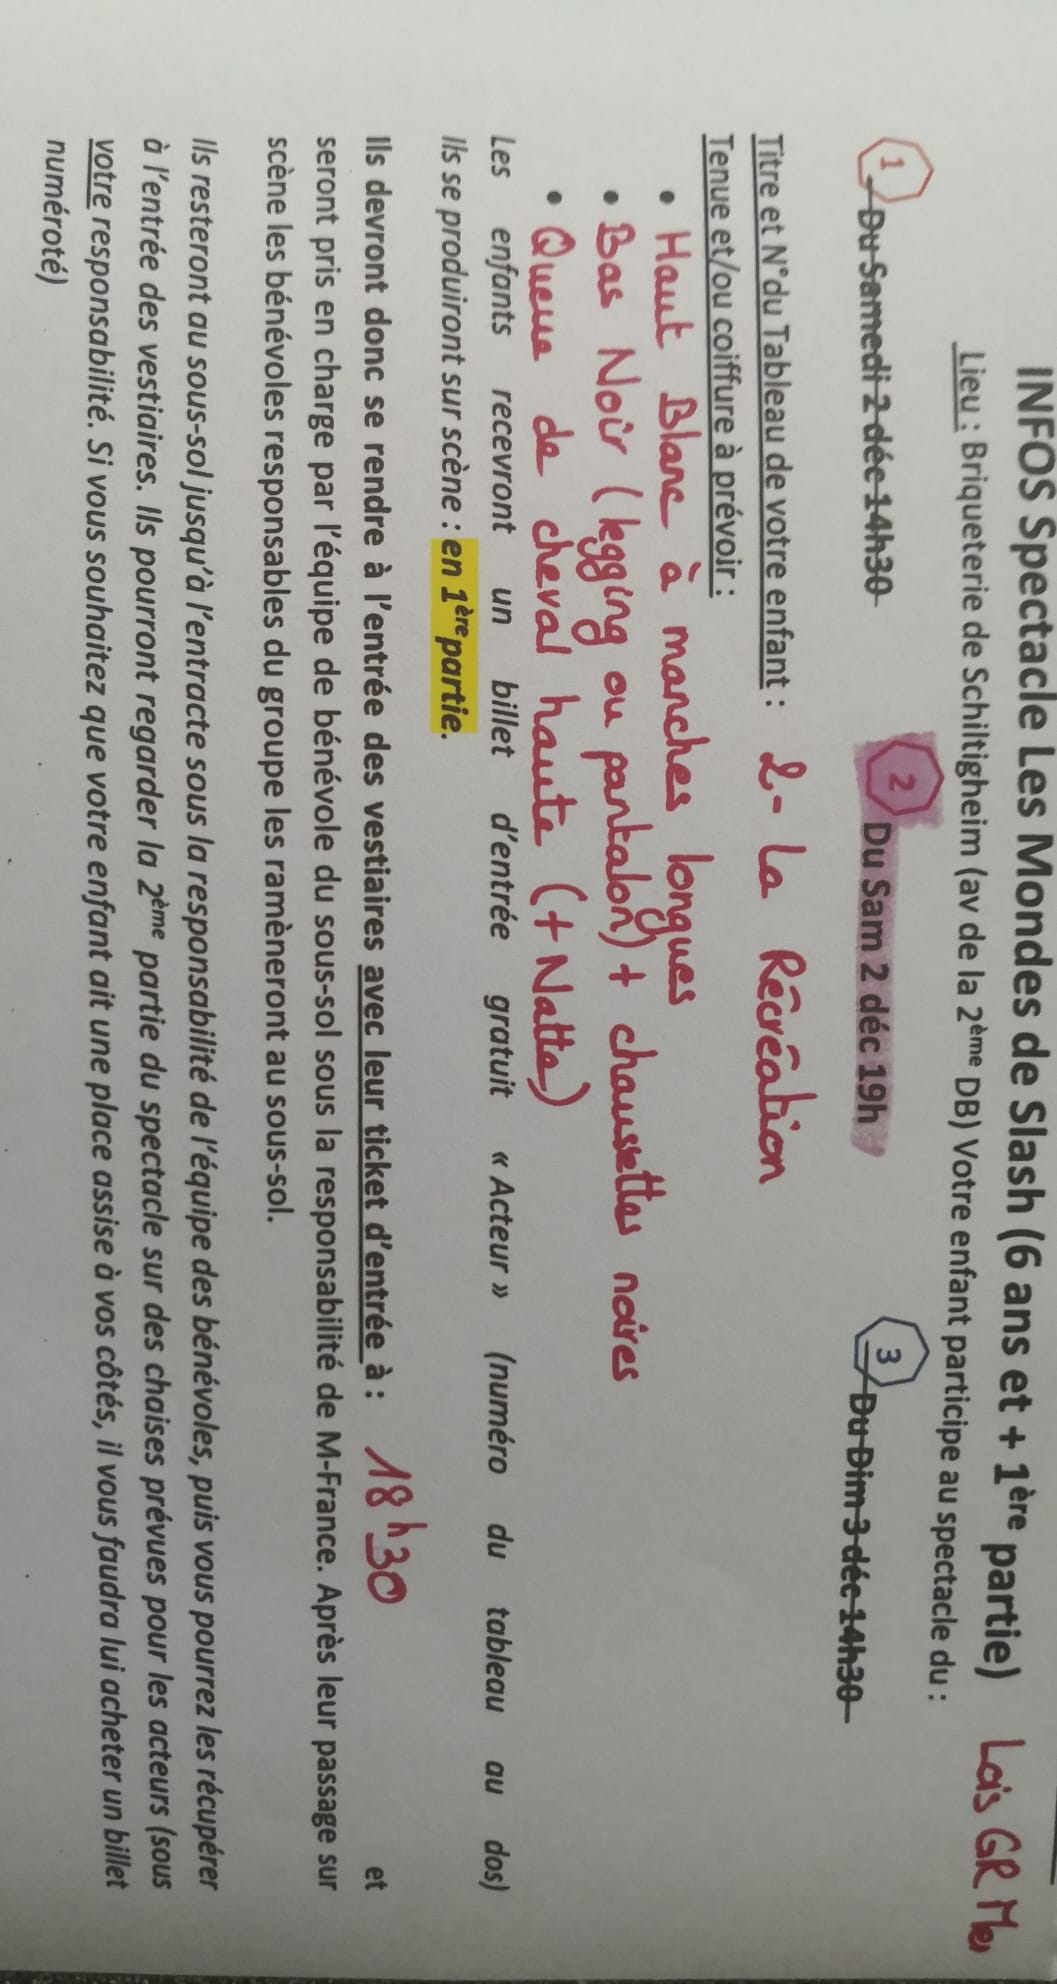 INFOS Spectacle Les Mondes de Slash (6 ans et + 1ère partie) Lois GR Mer
Lieu : Briqueterie de Schiltigheim (av de la 2ème DB) Votre enfant participe au spectacle du :
1 Du Samedi 2 déc 14h30 2 Du Sam 2 déc 19h 3 Du Dim 3 déc 14h30
Titre et N°du Tableau de votre enfant : 2- La Récréation
Tenue et/ou coiffure à prévoir :
• Haut Blanc à manches longues
• Bas Noir (legging ou pantalon) + chaussettes noires
• Queue de cheval haute (+ Natte)
Les enfants recevront un billet d'entrée gratuit « Acteur » (numéro du tableau au dos)
Ils se produiront sur scène : en 1ère partie.
Ils devront donc se rendre à l'entrée des vestiaires avec leur ticket d'entrée à : 18h30 et
seront pris en charge par l'équipe de bénévole du sous-sol sous la responsabilité de M-France. Après leur passage sur
scène les bénévoles responsables du groupe les ramèneront au sous-sol.
Ils resteront au sous-sol jusqu'à l'entracte sous la responsabilité de l'équipe des bénévoles, puis vous pourrez les récupérer
à l'entrée des vestiaires. Ils pourront regarder la 2ème partie du spectacle sur des chaises prévues pour les acteurs (sous
votre responsabilité. Si vous souhaitez que votre enfant ait une place assise à vos côtés, il vous faudra lui acheter un billet
numéroté)